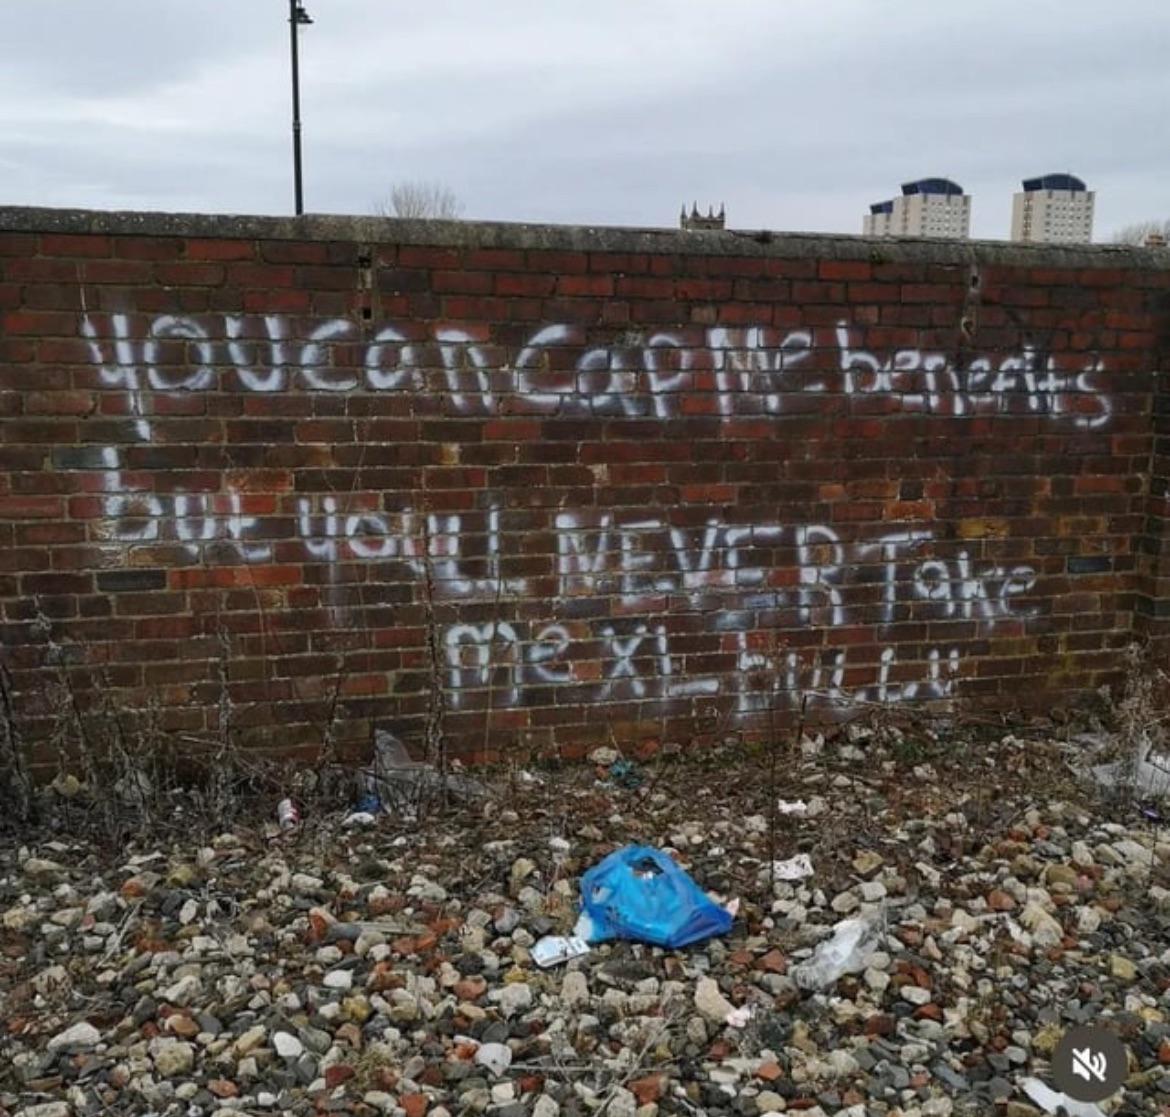 you can cap me benefits
but you'll NEVER Take
me XL bULL!!